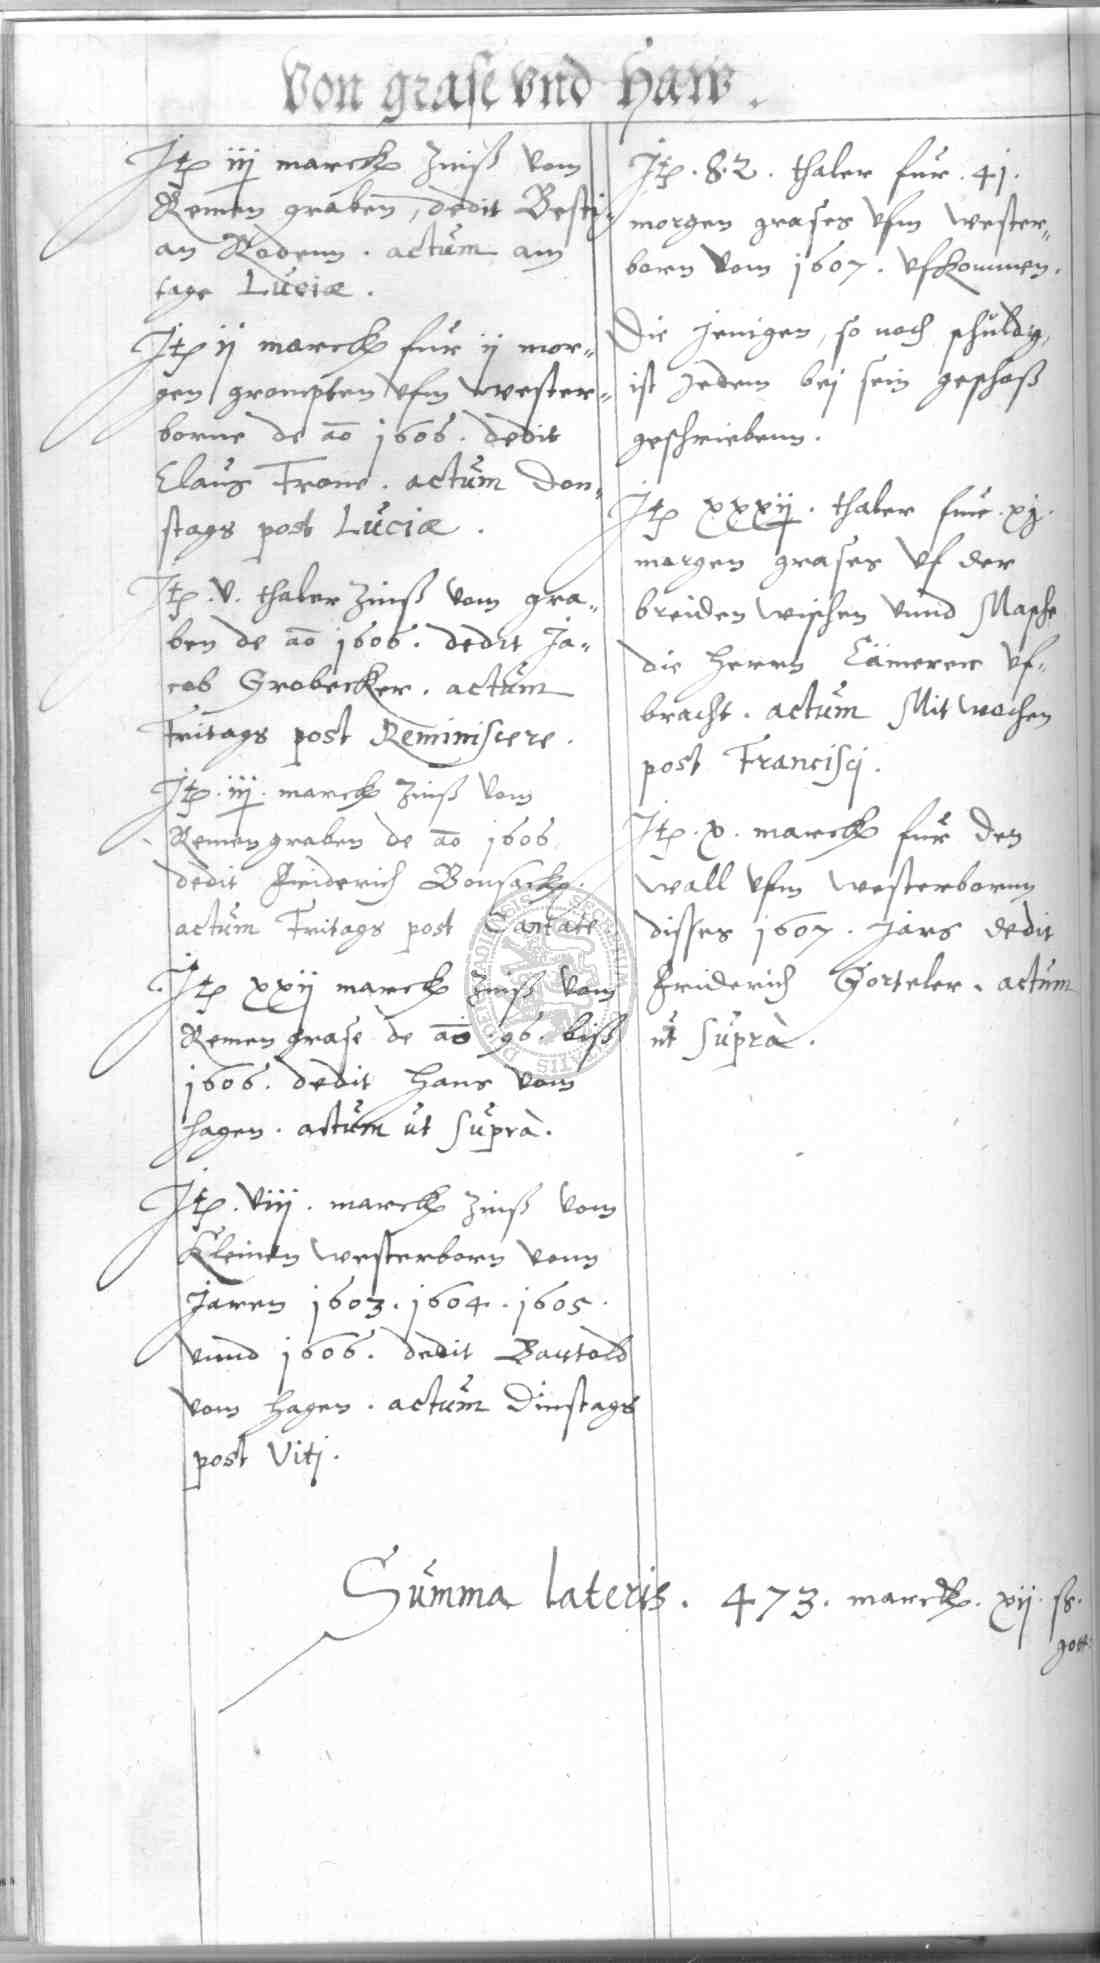 Von grase vnd Haw.
Jtem iij marck Zinß vom
Remen graben, dedit Besti-
an Rodenn. actum am
tage Luciæ.
Jtem ij marck fur ij mor-
gen grompten vfm wester-
borne de ao 1606. dedit
Claus Frone. actum Don-
stags post Luciæ.
Jtem .v. thaler Zinß vom gra-
ben de ao 1606. dedit Ja-
cob Grobecker. actum
Fritags post Reminiscere.
Jtem .iij. marck Zinß vom
Remen graben de ao 1606
dedit Friderich Bonsack.
actum Fritags post Cantate
Jtem xxij marck Zinß vom
Remen grase de ao .96. biß
1606. dedit Hans vom
hagen. actum ut supra.
Jtem .viij. marck Zinß vom
Kleinen westerborn vonn
Jaren 1603. 1604. 1605.
vnnd 1606. dedit Bartold
vom hagen. actum Dinstags
post Viti.
Jtem .82. thaler fur .41.
morgen grases vfm wester-
born vom 1607. vfkommen.
Die jenigen, so noch schuldig,
ist Jedem bej sein geschoß
geschriebenn.
Jtem xxxij. thaler fur .xj.
morgen grases vf der
breiden wischen vnnd Masche
die Herrn Cämerer vf-
bracht. actum Mitwochen
post Francisci.
Jtem .x. marck fur den
wall vfm westerbornn
disses 1607. Jars dedit
Friderich Gorteler. actum
ut supra.
Summa lateris. 473. marck. xij. ß.
gott.
SECRETUM